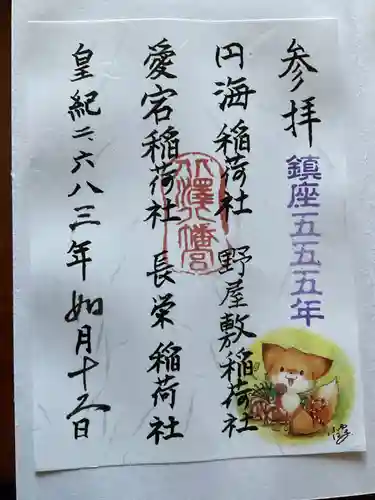 参拝
鎮座一五五五年
円海稲荷社 野屋敷稲荷社
愛宕稲荷社 長栄稲荷社
皇紀二六八三年如月十二日